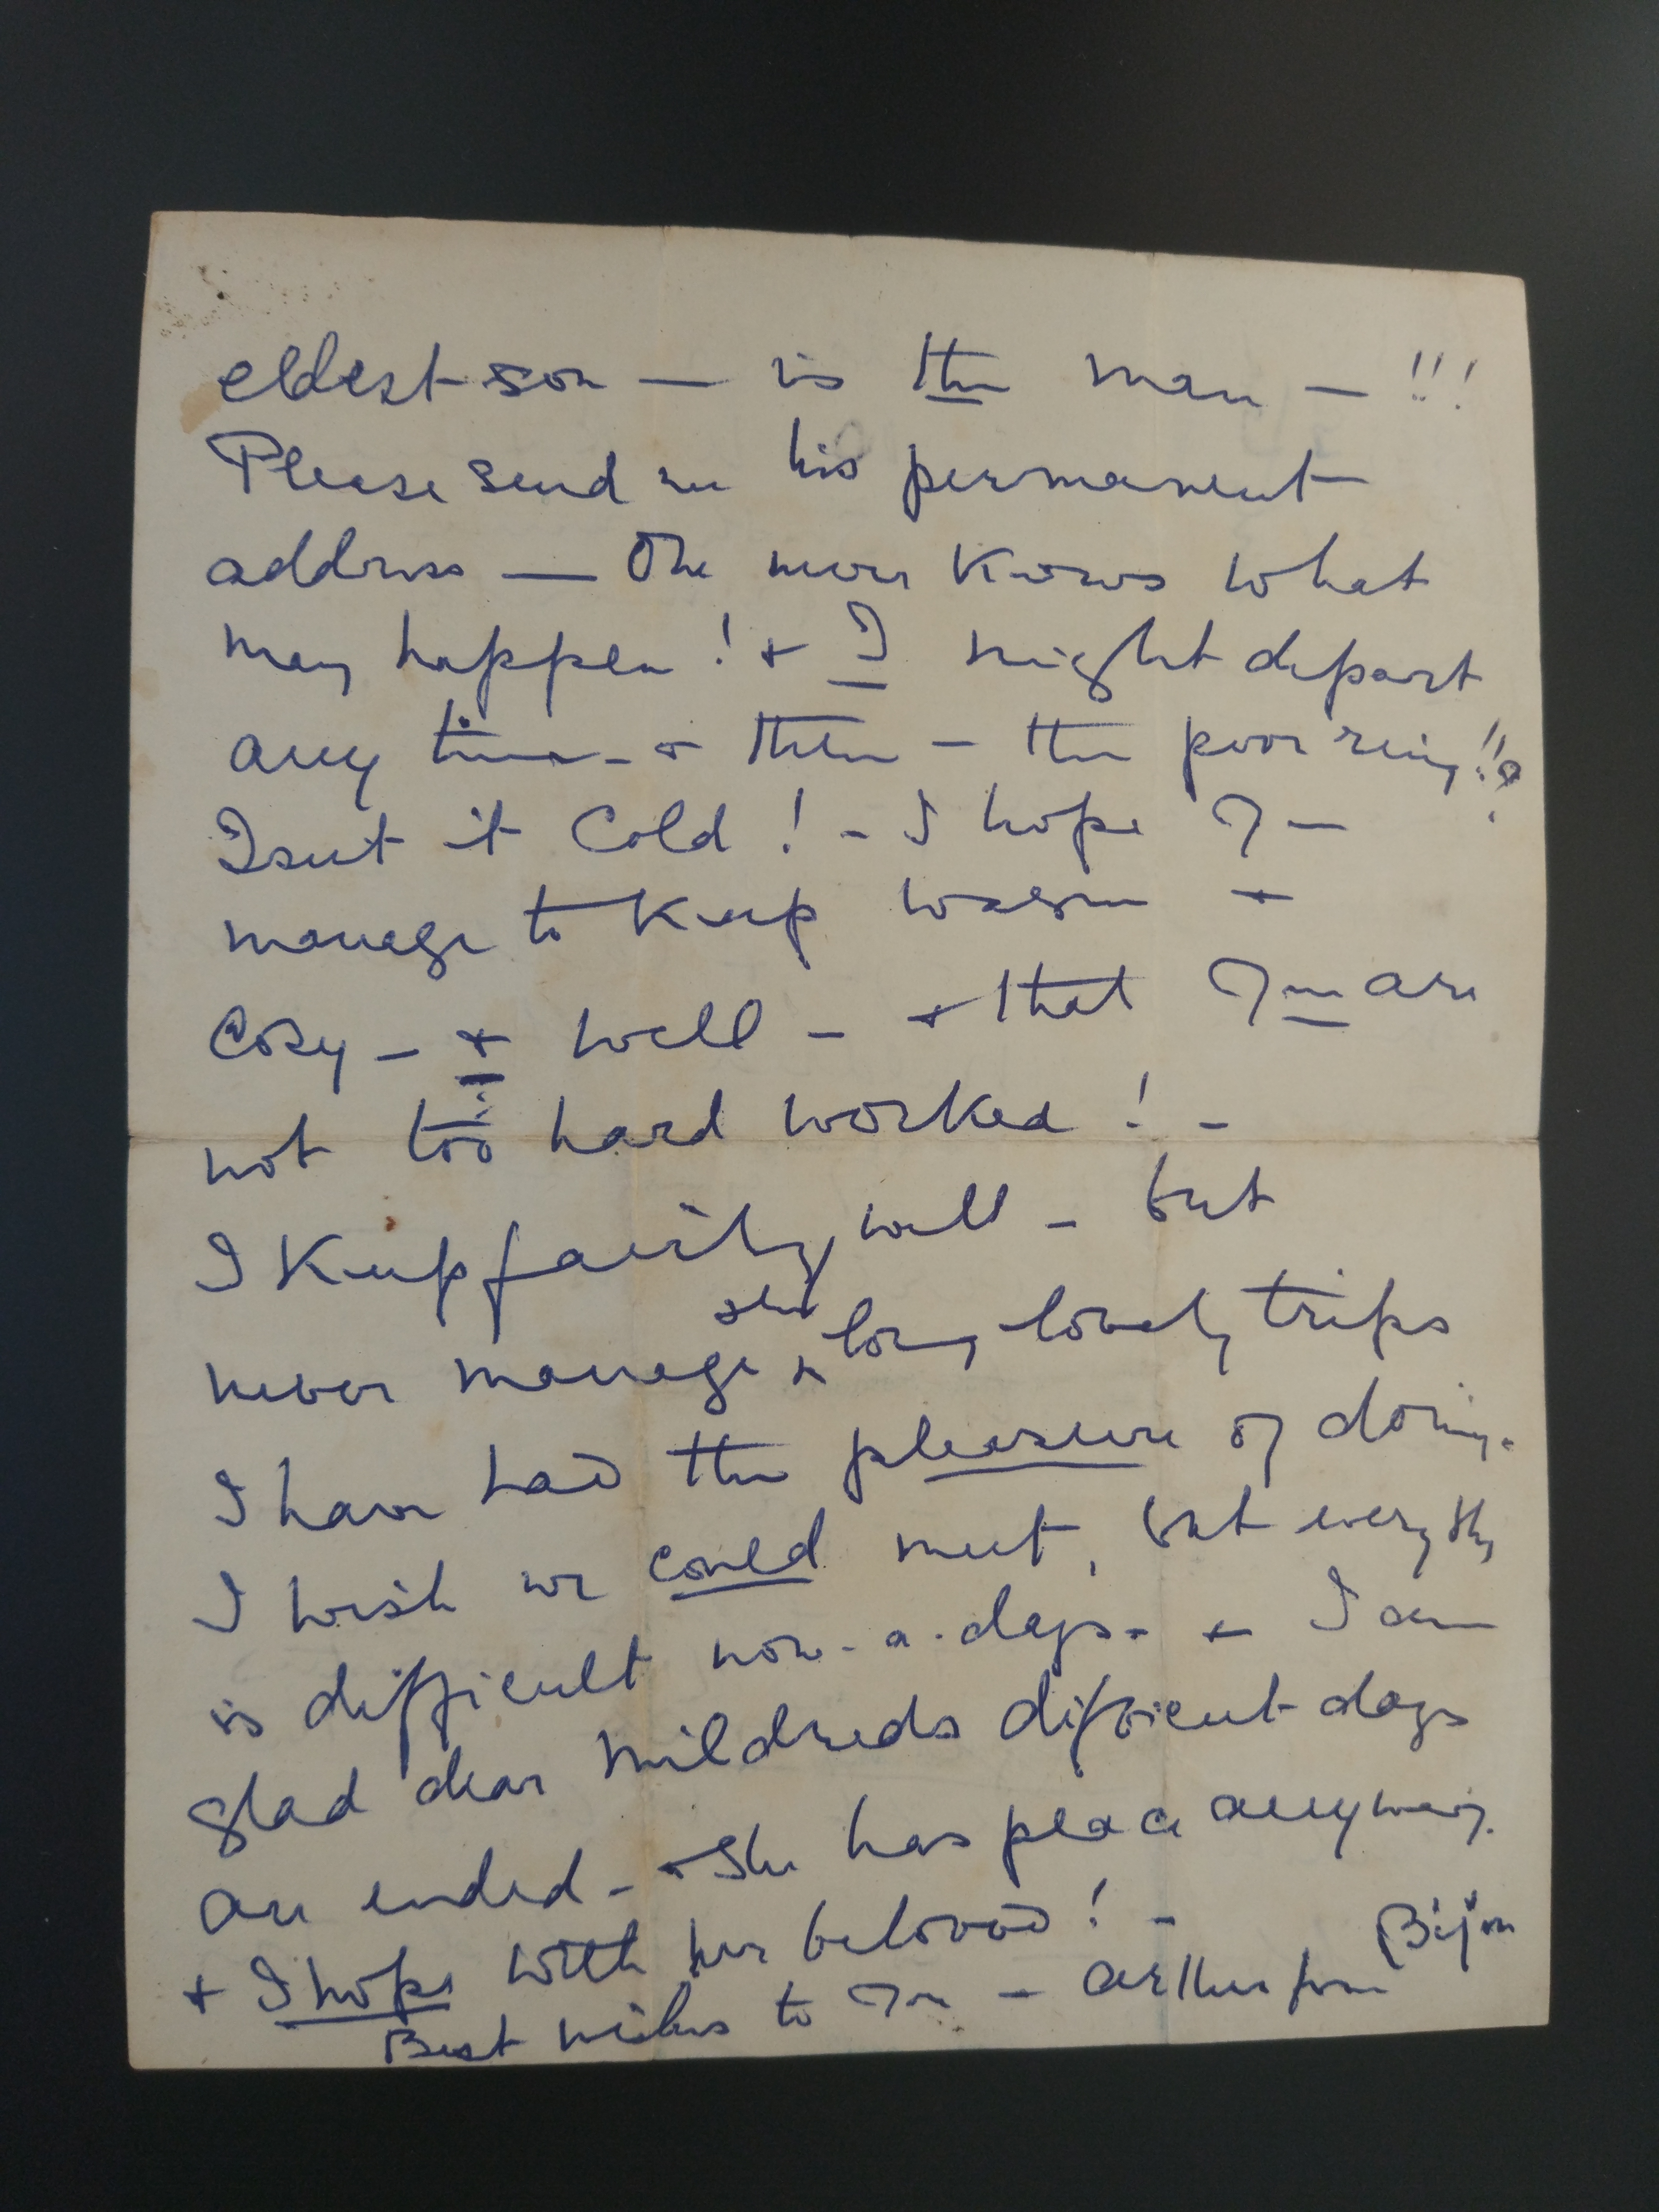 eldest son — is the man — !!!
Please send me his permanent
address — One never knows what
may happen! + I might depart
any time - & then — the poor ring!!?
Isn't it Cold! - I hope you
manage to keep warm +
Cosy — + well — + that you are
not too hard worked! -
I keep fairly well - but
never manage the long lovely trips
I have had the pleasure of doing.
I wish we could meet, but everythg
is difficult now-a-days. + I am
glad dear Mildreds difficult days
are ended - + She has peace anyway.
+ I hope with her beloved! -
Best wishes to you — Arthur from